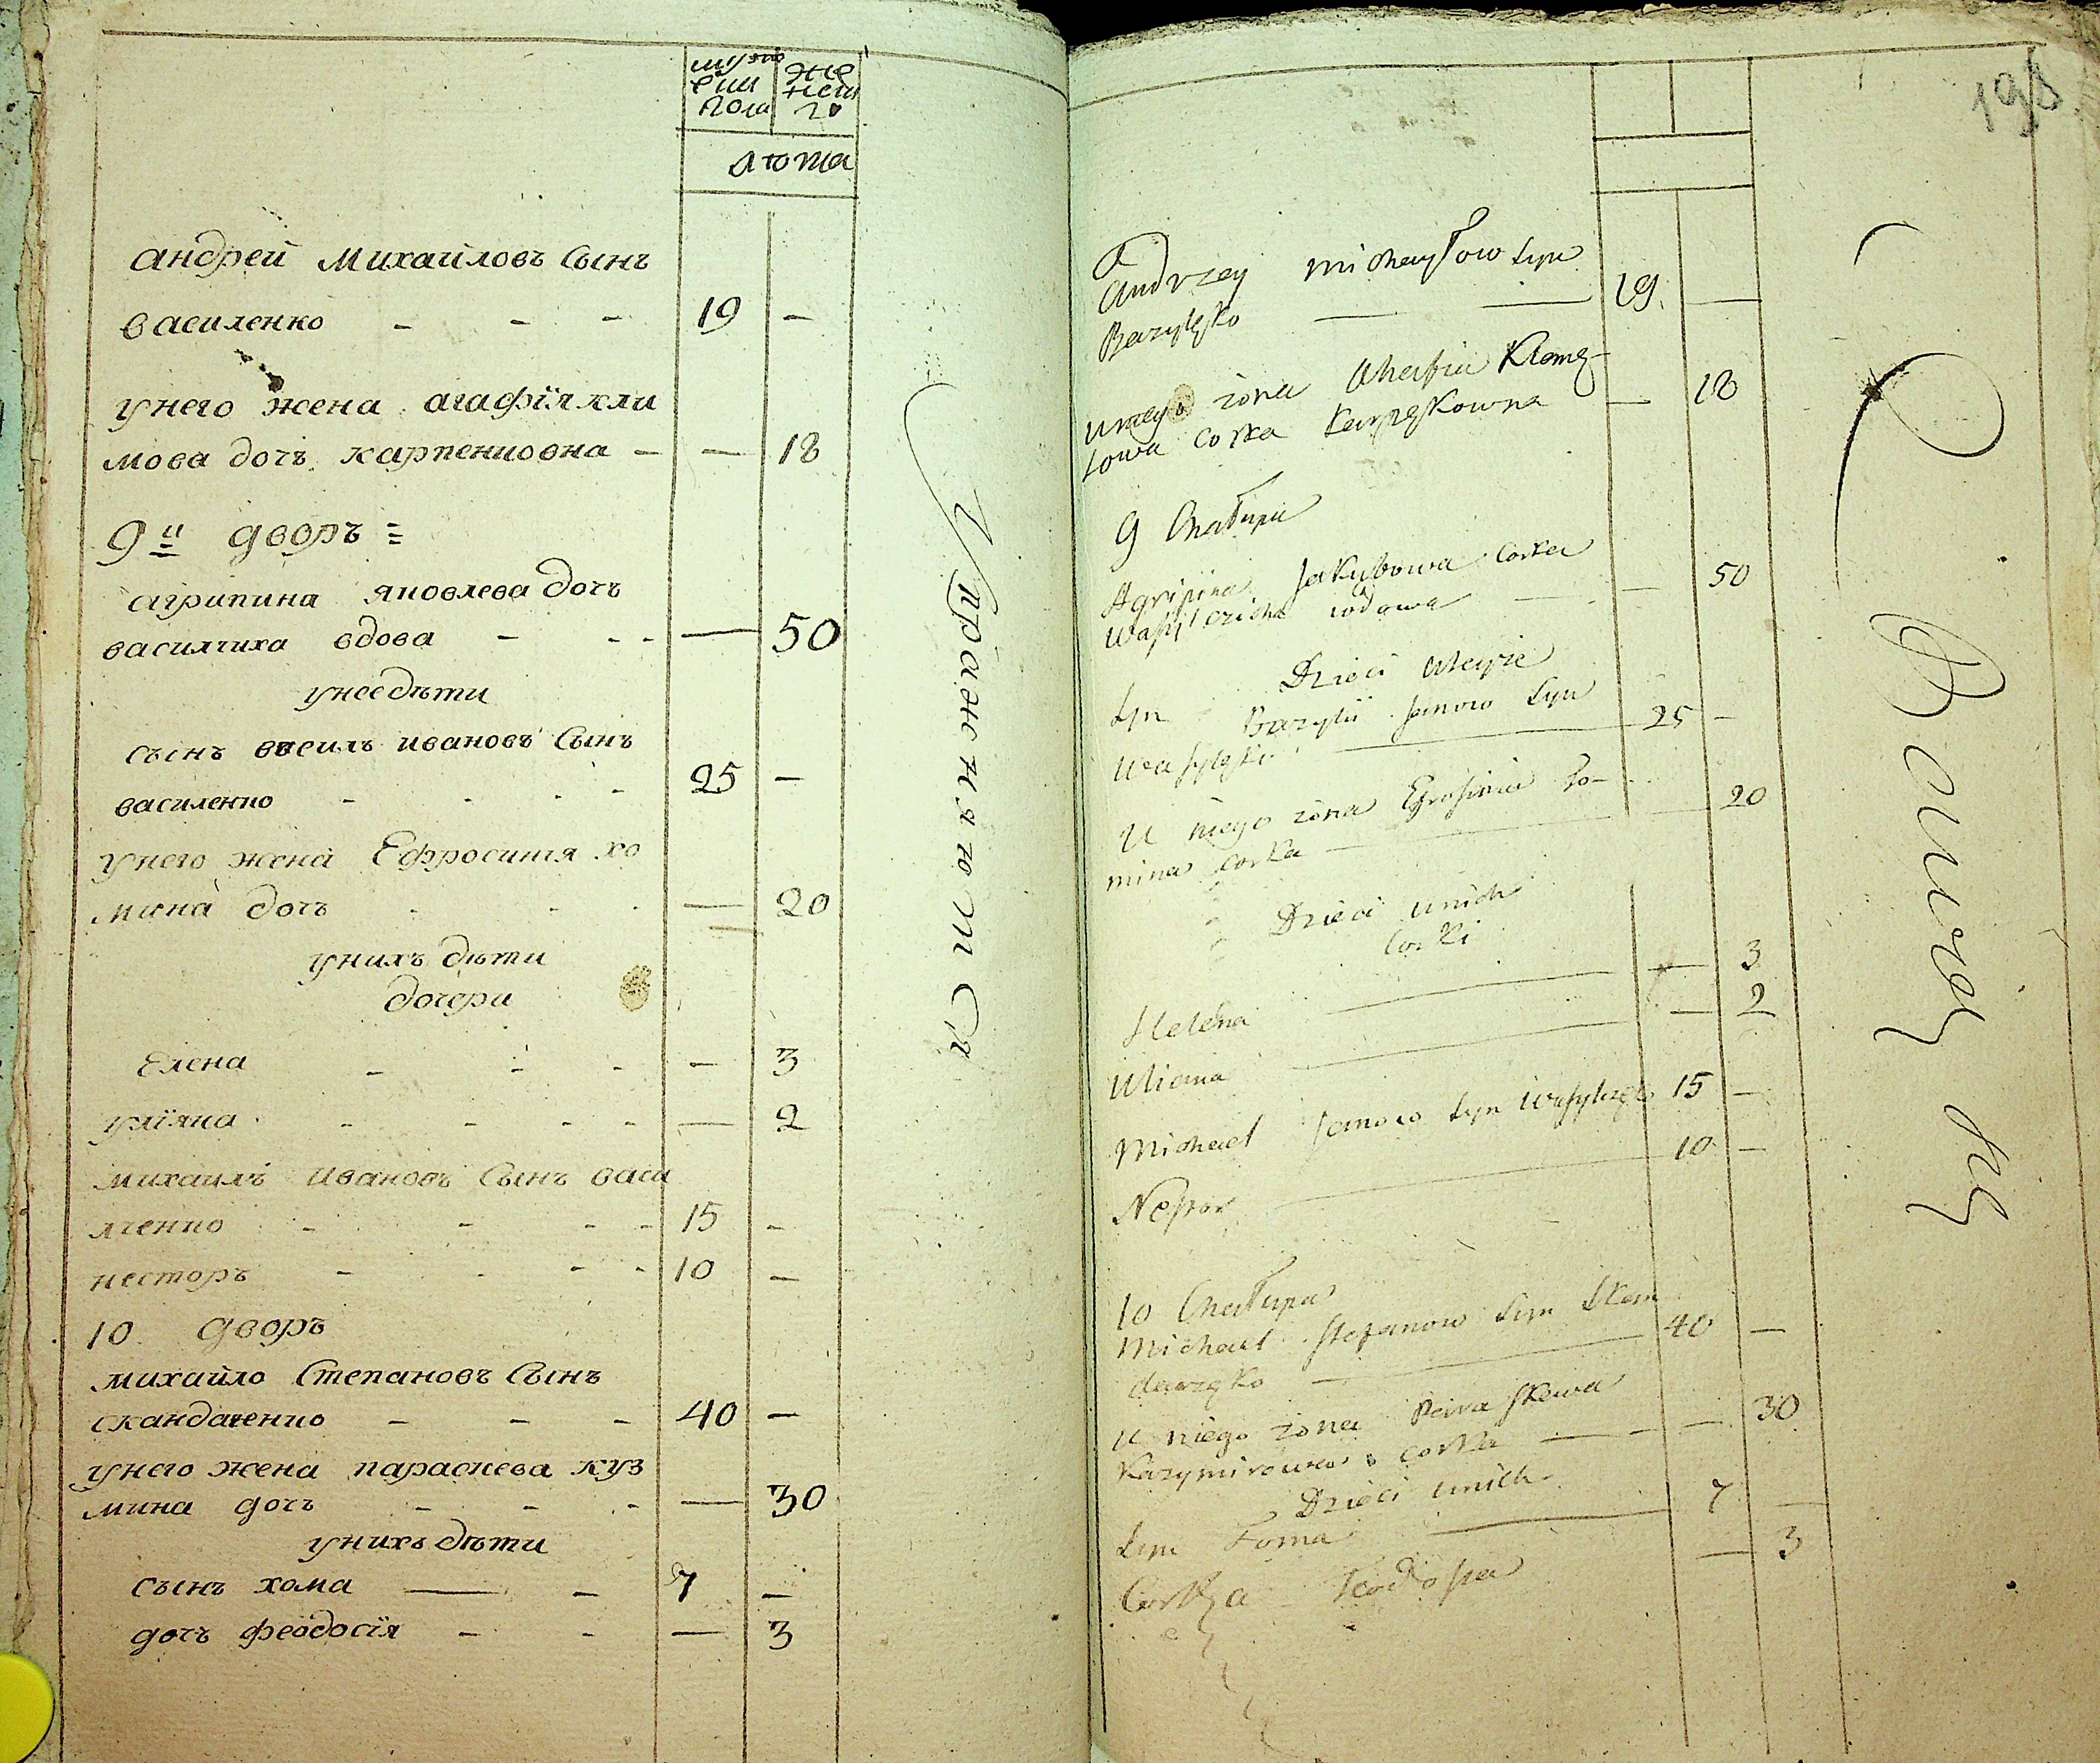 мужеска пола
женска го
лѣта
андрей михайловъ сынъ
василенко - - - 19 -
у него жена агафїя кли
мова дочъ карпенковна - - 18
9й дворъ =
агрипина яковлева дочъ
василчиха вдова - - - — 50
у нее дѣти
сынъ василь ивановъ сынъ
василенко - - - - 25 -
у него жена Ефросиния хо
мина дочъ - - - — 20
у нихъ дѣти
дочери
Елена - - - - 3
улїяна - - - - — 2
михаилъ ивановъ сынъ васи
лченко - - - - 15 -
несторъ - - - - 10 -
10 дворъ
михайло степановъ сынъ
скандаченко - - - 40 -
у него жена параскева куз
мина дочъ - - - — 30
у нихъ дѣти
сынъ хома — - 7 -
дочъ феодосїя - - — 3
198
Andrzey Michayłow syn
Bazylęko — — 19. —
u niego żona Ahafia Klemę-
towa corka Karpęskowna — 18
9 Chałupa
Agripina Jakubowa corka
Wasylczicha wdowa — — 50
Dzieci u teyże
syn Bazylii Janow syn
Wasylęko — 25 -
U niego żona Efrosinia Fo-
mina corka — — 20
Dzieci u nich
corki
Helena — — 3
Uliana — — 2
Michael Janow syn Wasylczęko 15 —
Nestor — 10 —
10 Chałupa
Michael Stefanow syn Skan
daczęko — — 40 —
u niego żona Paraskewa
Kazymirowa corka — — — 30
Dzieci u nich
syn Foma — 7 —
Corka Teodosia — 3